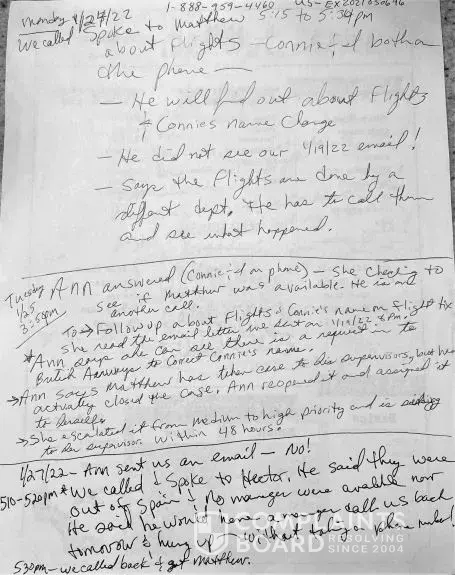 Monday 1/24/22 1-888-959-4460 US-EX2021050696
We called Spoke to Matthew 5:15 to 5:34pm
about flights - Connie & I both on
the phone -
- He will find out about flights
& Connie's name Change
- He did not see our 1/19/22 email!
- Says the flights are done by a
different dept. He has to call them
and see what happened.
Tuesday 1/25 3:58pm
ANN answered (Connie & I on phone) - She Checking to
see if Matthew was available. He is on
another call.
To → Follow up about flights & Connie's name on flight tix
she read the email letter we sent on 1/19/22 8pm.
* Ann says she can see there is a request in to
British Airways to Correct Connie's name.
→ Ann says Matthew has taken case to his supervisors, but has
actually closed the case. Ann reopened it and assigned it
to herself.
→ She escalated it from medium to high priority and is
to her supervisor within 48 hours.
1/27/22 - Ann sent us an email - No!
510-520pm * We called & Spoke to Hector. He said they were
out of Spain & No manager were available now
He said he would have a manager call us back
tomorrow & hung up - without taking a phone number!
530pm - we called back & got Matthew.
COMPLAINTS
BOARD RESOLVING
SINCE 2004